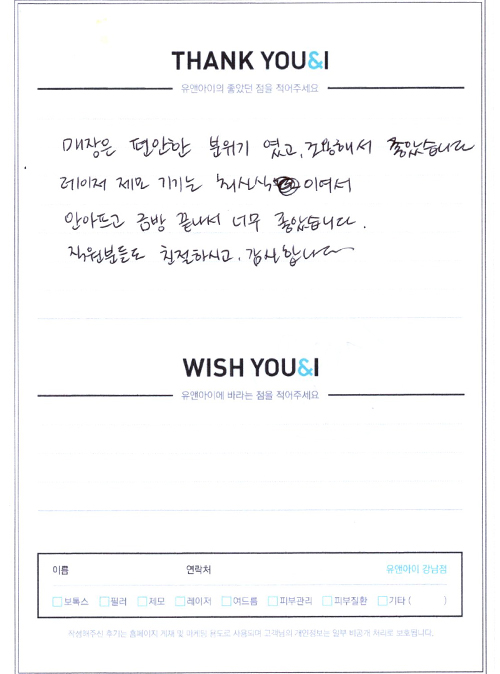 THANK YOU&I
유앤아이의 좋았던 점을 적어주세요
매장은 편안한 분위기 였고, 조용해서 좋았습니다
레이저 제모 기기는 최신식 이여서
안아프고 금방 끝나서 너무 좋았습니다.
직원분들도 친절하시고, 감사합니다
WISH YOU&I
유앤아이에 바라는 점을 적어주세요
이름 연락처 유앤아이 강남점
보톡스 필러 제모 레이저 여드름 피부관리 피부질환 기타 ( )
작성해주신 후기는 홈페이지 게재 및 마케팅 용도로 사용되며 고객님의 개인정보는 일부 비공개 처리로 보호됩니다.